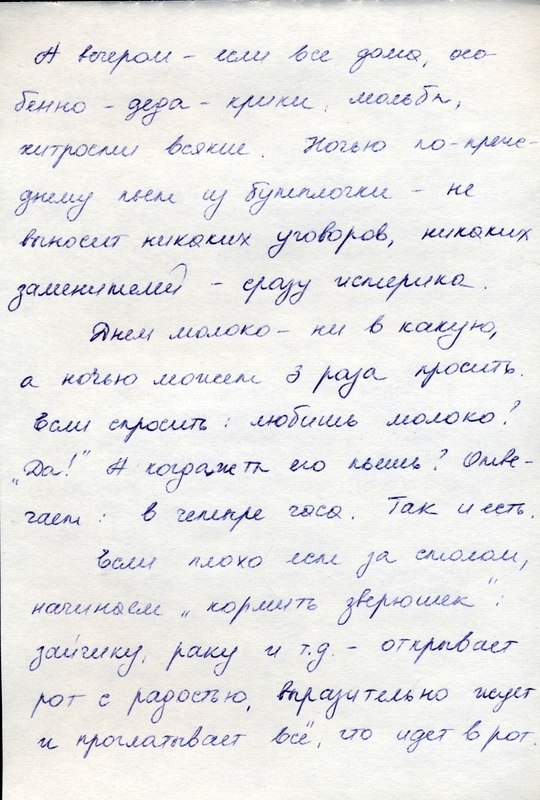 А вечером – если все дома, осо-
бенно – деда – крики, мольбы,
хитрости всякие. Ночью по-преж-
днему пьет из бутылочки – не
выносит никаких уговоров, никаких
заменителей – сразу истерика.
Днем молоко – ни в какую,
а ночью может 3 раза просить.
Если спросить: любишь молоко?
„Да!" А когда же ты его пьешь? Отве-
чает: в четыре часа. Так и есть.
Если плохо ест за столом,
начинаем „кормить зверюшек":
зайчику, раку и т.д. – открывает
рот с радостью, выразительно жует
и проглатывает всё, что идет в рот.